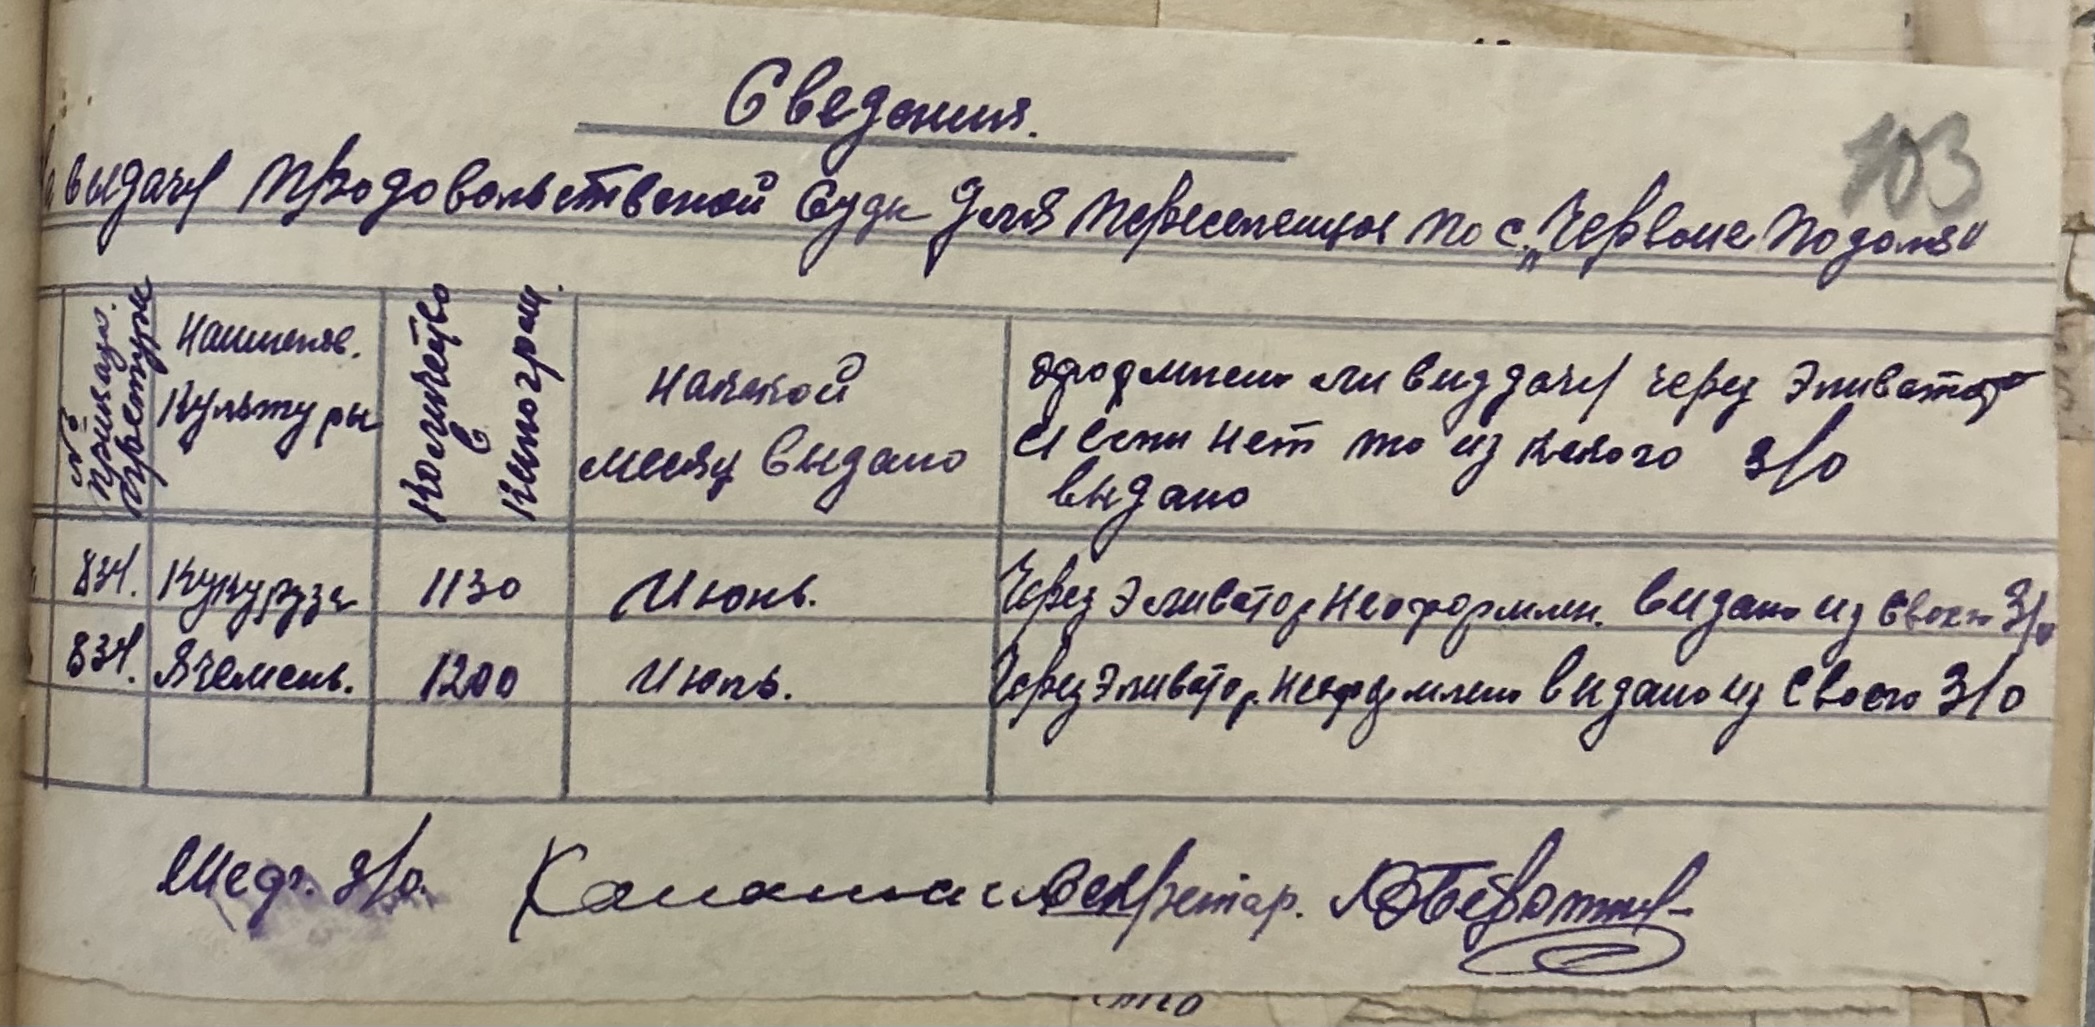 Сведения.
103
выдачи продовольственой суды для переселенцы по с. „Червоне Подоля"
№ приказо. претуры
Наименов. Культуры
Количество в килограм.
на какой месяц выдано
Оформлено ли выддачи через Эливатор
и если нет то из какого з/о
выдано
834. Кукуруза 1130 Июнь. Через Эливатор Неоформлен. Видано из своего З/о
834. Ячемень. 1200 Июнь. Через Эливатор. неоформлено видано из своего З/о
з/о. Секретар.